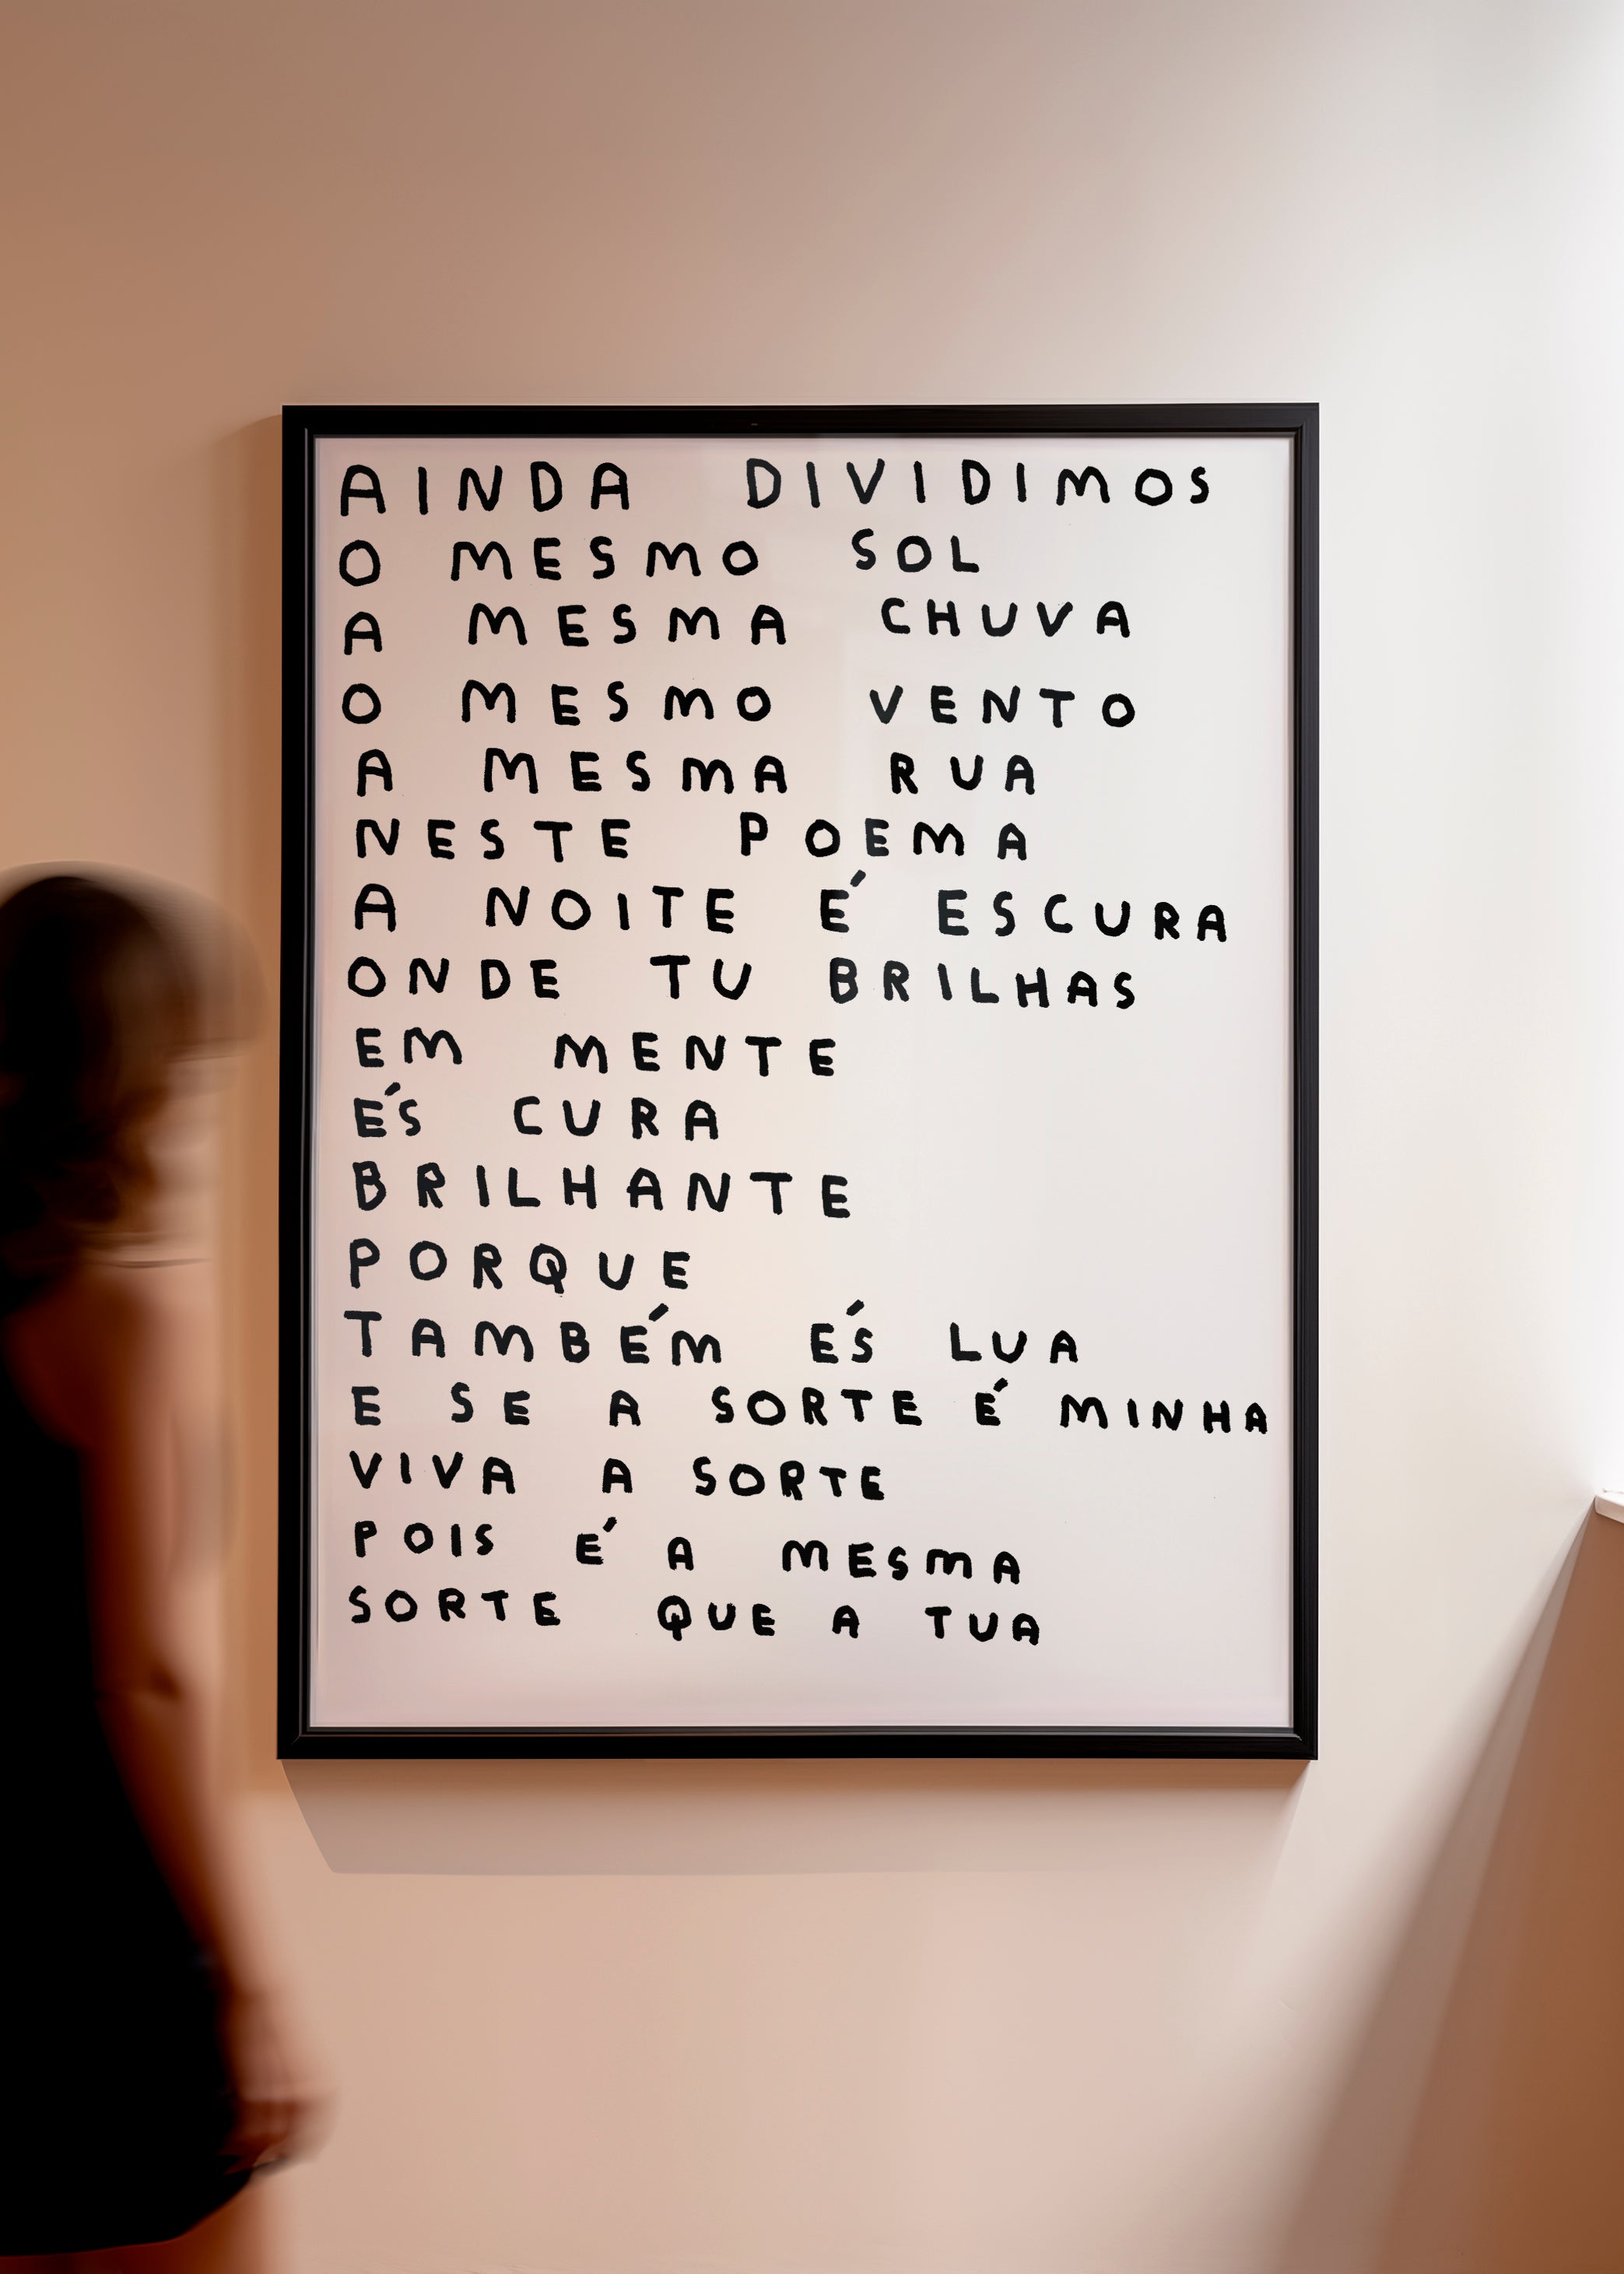 AINDA DIVIDIMOS
O MESMO SOL
A MESMA CHUVA
O MESMO VENTO
A MESMA RUA
NESTE POEMA
A NOITE É ESCURA
ONDE TU BRILHAS
EM MENTE
ÉS CURA
BRILHANTE
PORQUE
TAMBÉM ÉS LUA
E SE A SORTE É MINHA
VIVA A SORTE
POIS É A MESMA
SORTE QUE A TUA